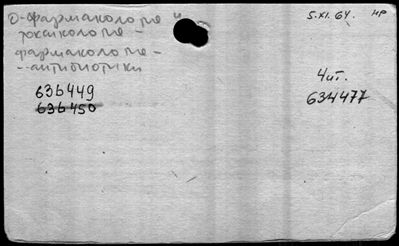 О-фармакологие и
токсикологие -
фармакологие -
- антибиотики
636449
636450
5.XI.64. нр
4 ит.
634477